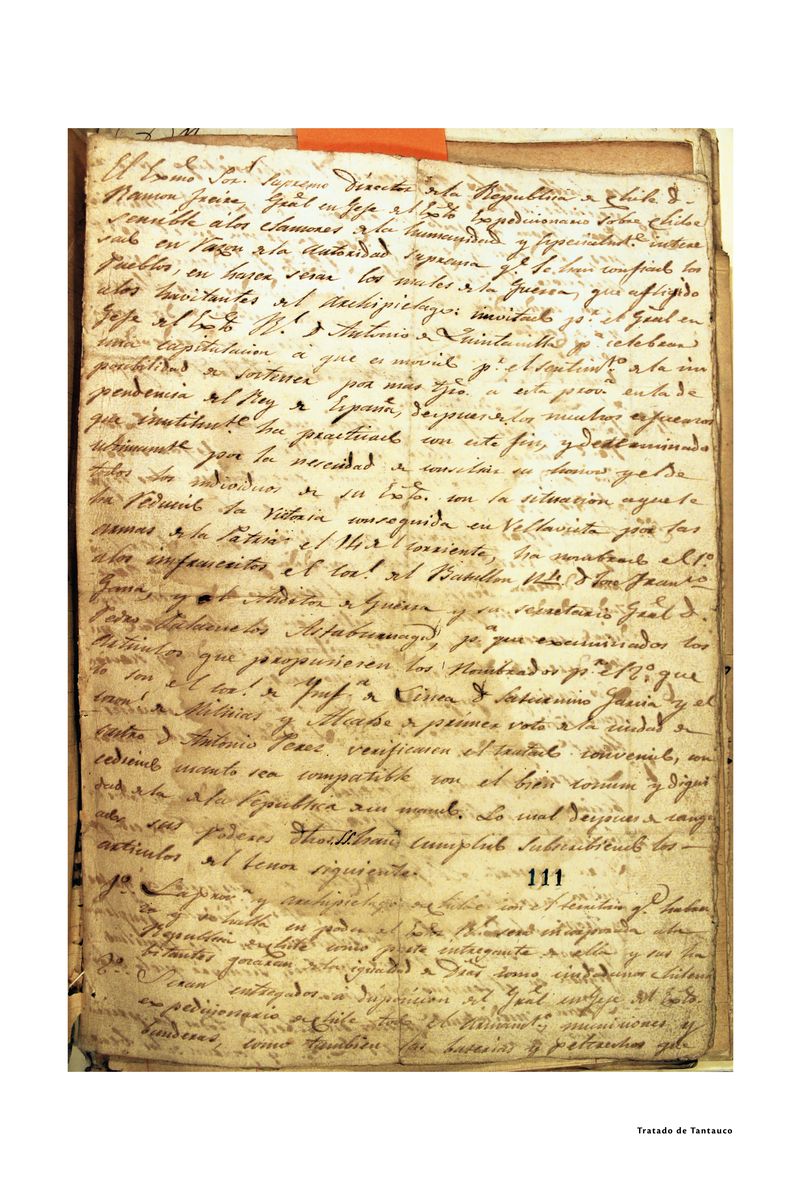 El Exmo Sor. Supremo Director de la Republica de Chile D.
Ramon Freire, Gral en Gefe del Exto Expedicionario sobre Chiloe
sencible a los clamores de la humanidad y Especialmte intere
sad en razon de la autoridad suprema qe le han confiad los
Pueblos, en hacer sesar los males de la Guerra, que afligido
a los havitantes del archipielago: invitad pr. el Gral en
Gefe del Exto Rl. D Antonio de Quintanilla pa. celebrar
una capitulacion á que es movil pr. el sentimto. de la im
posibilidad de sostener por mas tpo. a esta prova. en la de
pendencia del Rey de España, despues de los muchos esfuerzos
que inutilmte ha practicad con este fin, y determinado
ultimamte por la nescidad de consiliar su honor y el de
todos los individuos de su Exto. con la situacion a que le
ha reducid la victoria conseguida en Vellavista por las
armas de la Patria el 14 del corriente, ha nombrad el 1o.
a los infrascritos el Corl. del Batallon No 4 D Jose Franco
Gana, y el Auditor de Guerra y su secretario Gral D.
Pedro Palazuelos Astaburuaga, pa. que examinados los
articulos que propusiesen los nombrados pr. el 2o. que
lo son el Corl. de Infa. de Linea D Saturnino Garcia y el
de Milicias y Alcalde de primer voto de la ciudad de
Castro D Antonio Perez verificasen el tratad convenid, con
cediend cuanto sea compatible con el bien comun y digni
dad de la de la Republica de su mand. Lo cual despues de cange
ados sus Poderes dhos. SS. han cumplid subscribiend los
articulos del tenor siguiente.
111
1o. La prova. y archipielago de Chiloe con el territorio qe. habra
za y se halla en poder del Exto Rl. sera incorporada a la
Republica de Chile como parte integrante de ella y sus ha
bitantes gozaran de la igualdad de dros. como ciudadanos chilenos
2o. Seran entregados a disposicion del Gral en Gefe del Exto.
expedicionario de Chile tod el armamto., municiones y
banderas, como tambien las baterias y petrechos que
Tratado de Tantauco